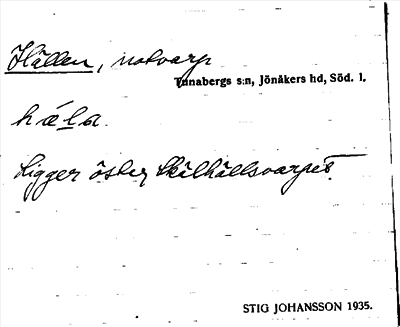 Hällen, notvarp
Tunabergs s:n, Jönåkers hd, Söd. l.
hǽ̣la.
Ligger öster Skälhällsvarpet.
STIG JOHANSSON 1935.